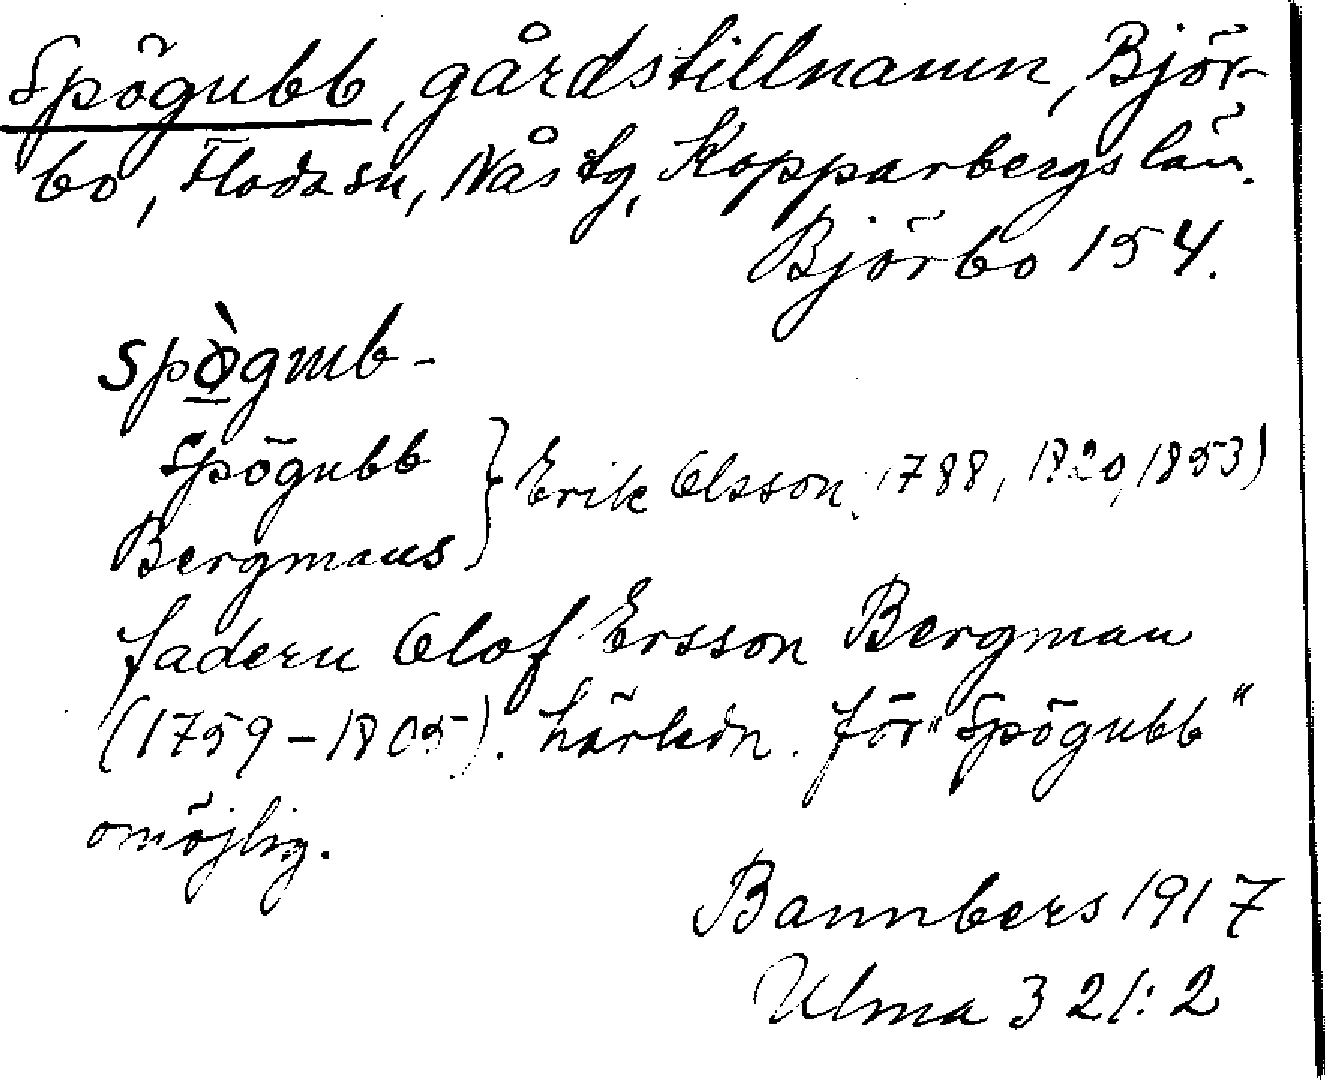 Spögubb, gårdstillnamn, Björ-
bo, Floda sn, Nås tg, Kopparbergs län.
Björbo 154.
spò̱gub-
Spögubb
Bergmans } Erik Olsson, 1788, 1820, 1853)
fadern Olof Ersson Bergman
(1759-1805). härledn. för "Spögubb"
omöjlig.
Bannbers 1917
Ulma 321:2